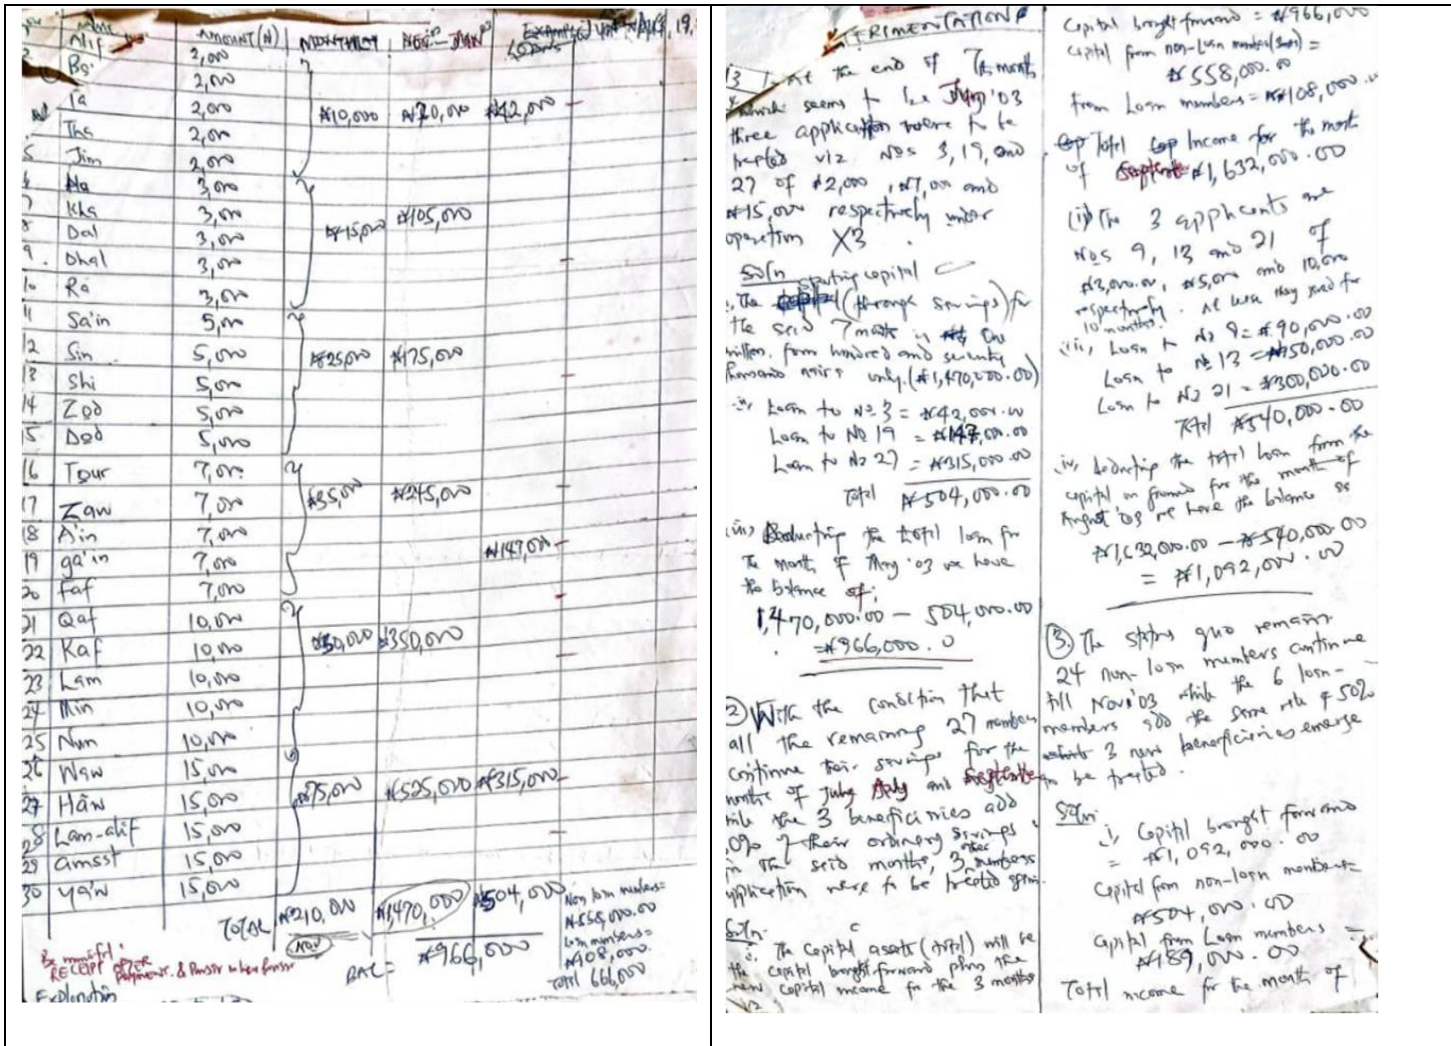 Name AMOUNT (N) MONTHLY NOV - JUN
Alif 2,000
Ba 2,000
Ta 2,000 ₦10,000 ₦70,000 ₦42,000
Tha 2,000
5 Jim 2,000
Ha 3,000
Kha 3,000 ₦15,000 ₦105,000
Dal 3,000
9. Dhal 3,000
10 Ra 3,000
11 Sa'in 5,000
12 Sin 5,000 ₦25,000 ₦175,000
13 Shi 5,000
14 Zod 5,000
15 Dod 5,000
16 Tour 7,000
17 Zaw 7,000 ₦35,000 ₦245,000
18 A'in 7,000
19 ga'in 7,000 ₦147,000
20 faf 7,000
21 Qaf 10,000
22 Kaf 10,000 ₦50,000 ₦350,000
23 Lam 10,000
24 Mim 10,000
25 Nun 10,000
26 Waw 15,000
27 Hāw 15,000 ₦75,000 ₦525,000 ₦315,000
28 Lam-alif 15,000
29 amsst 15,000
30 ya'w 15,000
TOTAL ₦210,000 ₦1,470,000 ₦504,000
Nov
BAL = ₦966,000
Non loan members=
₦558,000.00
Loan members=
₦108,000.
Total 666,000
RECEIPT AFTER
Explanation
At the end of 7th month
which seems to be '03
three application were to be
treated viz. Nos 3, 19, and
27 of ₦2,000, ₦7,000 and
₦15,000 respectively under
operation X3.
Soln
starting capital
i. The (through savings) for
the said 7 month is One
million, four hundred and seventy
thousand naira only. (₦1,470,000.00)
ii, Loan to No 3 = ₦42,000.00
Loan to No 19 = ₦147,000.00
Loan to No 27 = ₦315,000.00
Total ₦504,000.00
iii, Deducting the total loan for
the month of May '03 we have
the balance of;
1,470,000.00 - 504,000.00
= ₦966,000.0
② With the condition that
all the remaining 27 members
continue their savings for the
months of July and September
the 3 beneficiaries add
of their ordinary savings
in the said months, 3 members
application were to be treated again.
Soln.
i. The capital assets (total) will be
the capital bought forward plus the
new capital income for the 3 months
Capital brought forward = ₦966,000
Capital from non-loan members =
₦558,000.00
From Loan members = ₦108,000.00
Total Income for the month
of ₦1,632,000.00
(ii) The 3 applicants are
Nos 9, 13 and 21 of
₦3,000.00, ₦5,000 and 10,000
respectively. At least they saved for
10 months.
iii, Loan to No 9 = ₦90,000.00
Loan to No 13 = ₦150,000.00
Loan to No 21 = ₦300,000.00
Total ₦540,000.00
iv, Deducting the total loan from the
capital on ground for the month of
August '03 we have the balance as
₦1,632,000.00 - ₦540,000.00
= ₦1,092,000.00
③. The status quo remain
24 non-loan members continue
till Nov '03 while the 6 loan-
members add the same rate of 50%
3 new beneficiaries emerge
to be treated.
Soln
i, Capital brought forward
= ₦1,092,000.00
Capital from non-loan members=
₦504,000.00
Capital from Loan members =
₦189,000.00
Total income for the month of